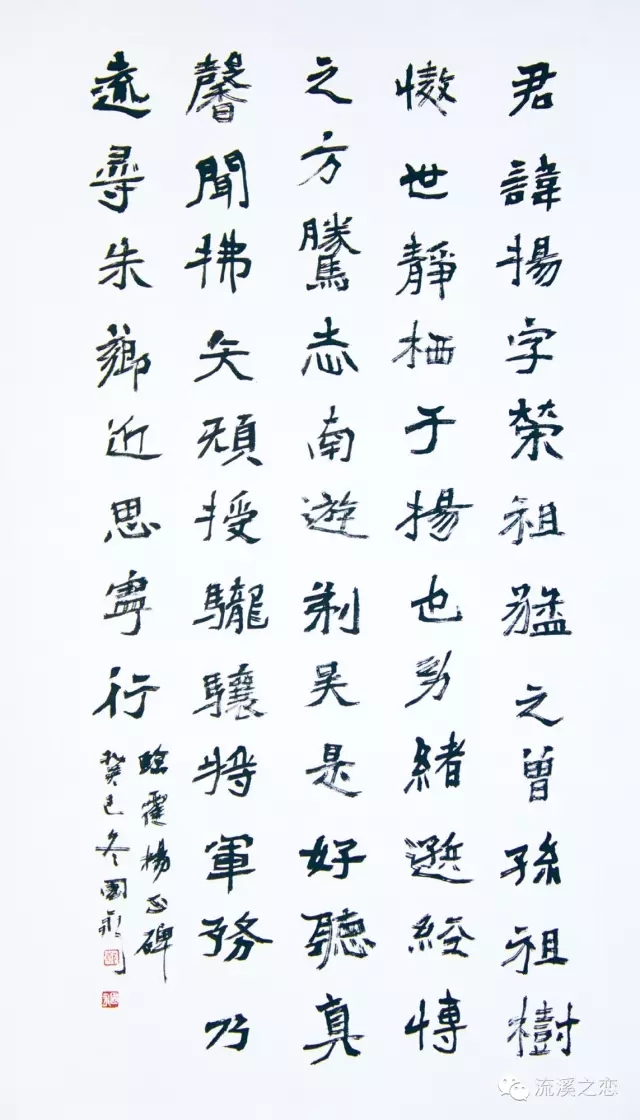 君諱揚字榮祖猛之曾孫祖樹
慠世靜栖于揚也勇緒遞經博
之方騰志南遊荆吴是好聽真
馨聞拂矢頑授驪驤將軍務乃
遠尋朱鄉近思寧行
臨霍揚正碑
癸巳冬國
流溪之恋